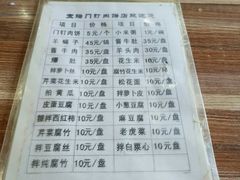 宝瑞门钉肉饼店欢迎您
项目 价格 项目 价格
门钉肉饼 5元/个 小米粥 1元/碗
羊蝎子 45元/锅 酱牛肚 35元/盘
酱牛肉 35元/盘 羊头肉 30元/盘
爆肚 35元/盘 花生米 10元/盘
拌萝卜丝 10元/盘 腐竹花生米 10元/盘
芹菜花生米 10元/盘 松花蛋 10元/盘
拍黄瓜 10元/盘 拌萝卜皮 10元/盘
皮蛋豆腐 10元/盘 小葱豆腐 10元/盘
糖拌西红柿 10元/盘 麻豆腐 10元/盘
芹菜腐竹 10元/盘 老虎菜 10元/盘
拌豆腐丝 10元/盘 拌白菜心 10元/盘
拌纯腐竹 10元/盘